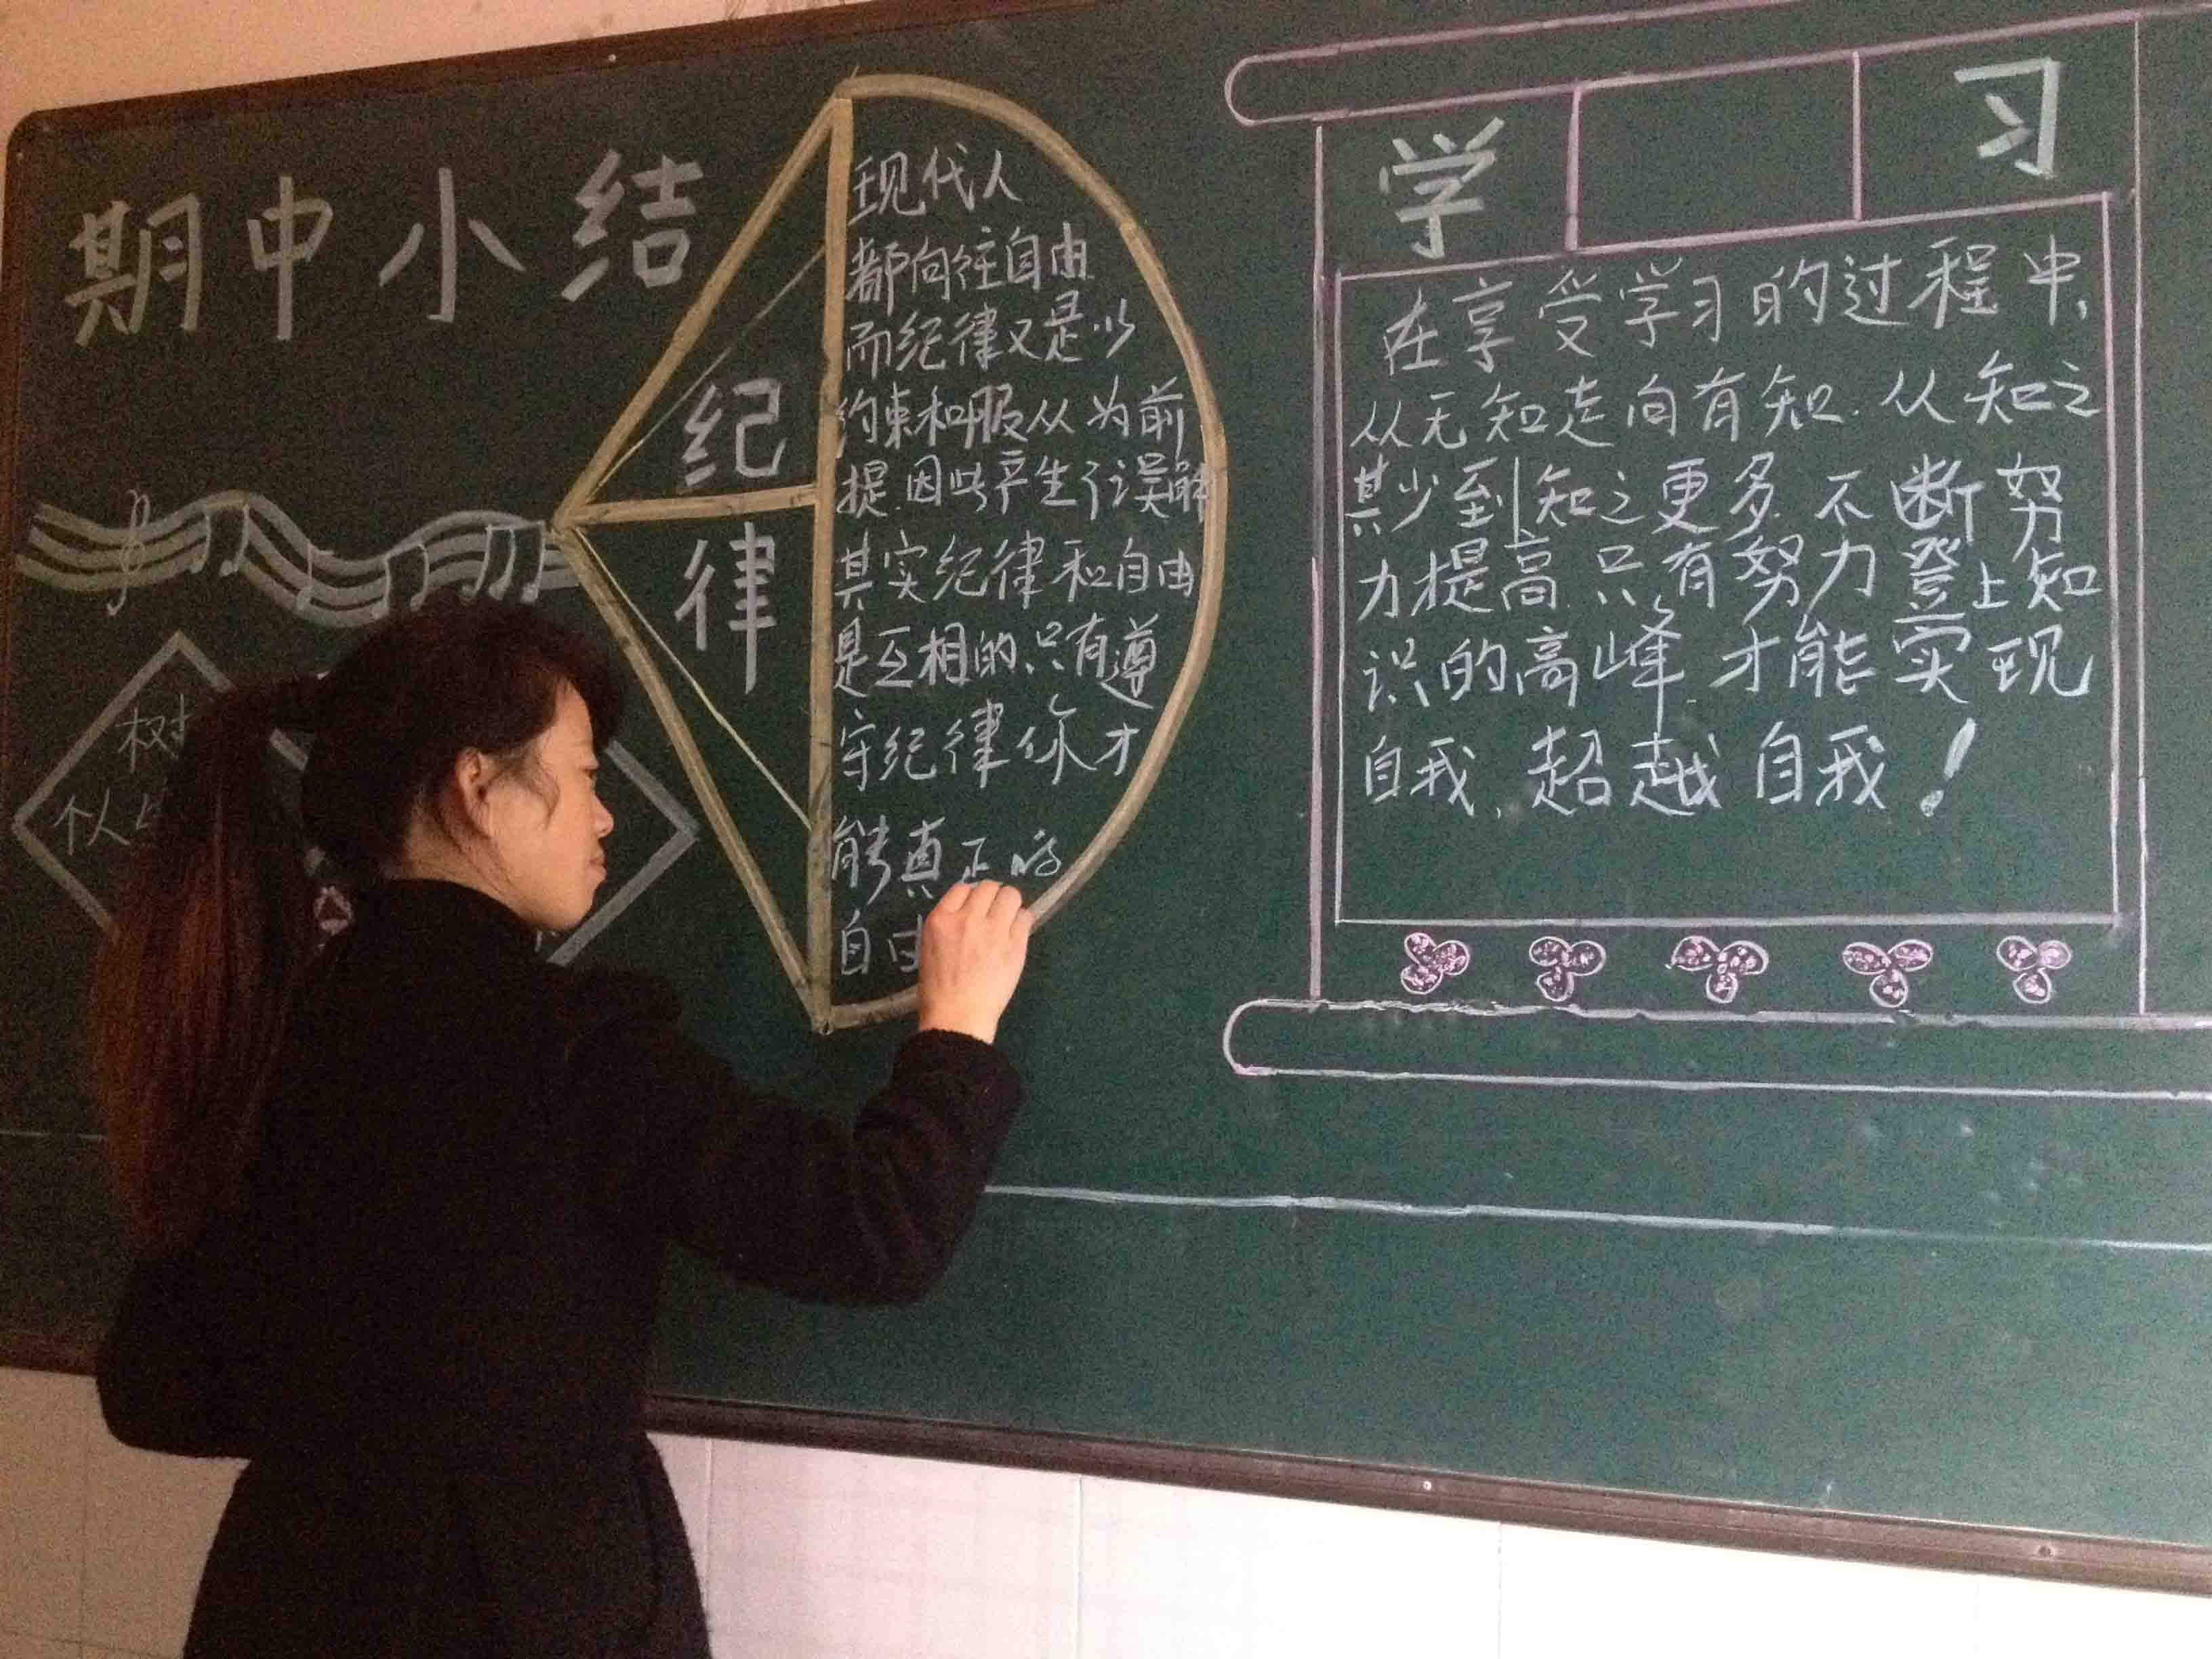 期中小结
纪律
现代人
都向往自由
而纪律又是以
约束和服从为前
提.因此产生了误解
其实纪律和自由
是互相的.只有遵
守纪律你才
能真正的
自由
学习
在享受学习的过程中,
从无知走向有知.从知之
甚少到知之更多.不断努
力提高.只有努力登上知
识的高峰.才能实现
自我,超越自我!
树
个人